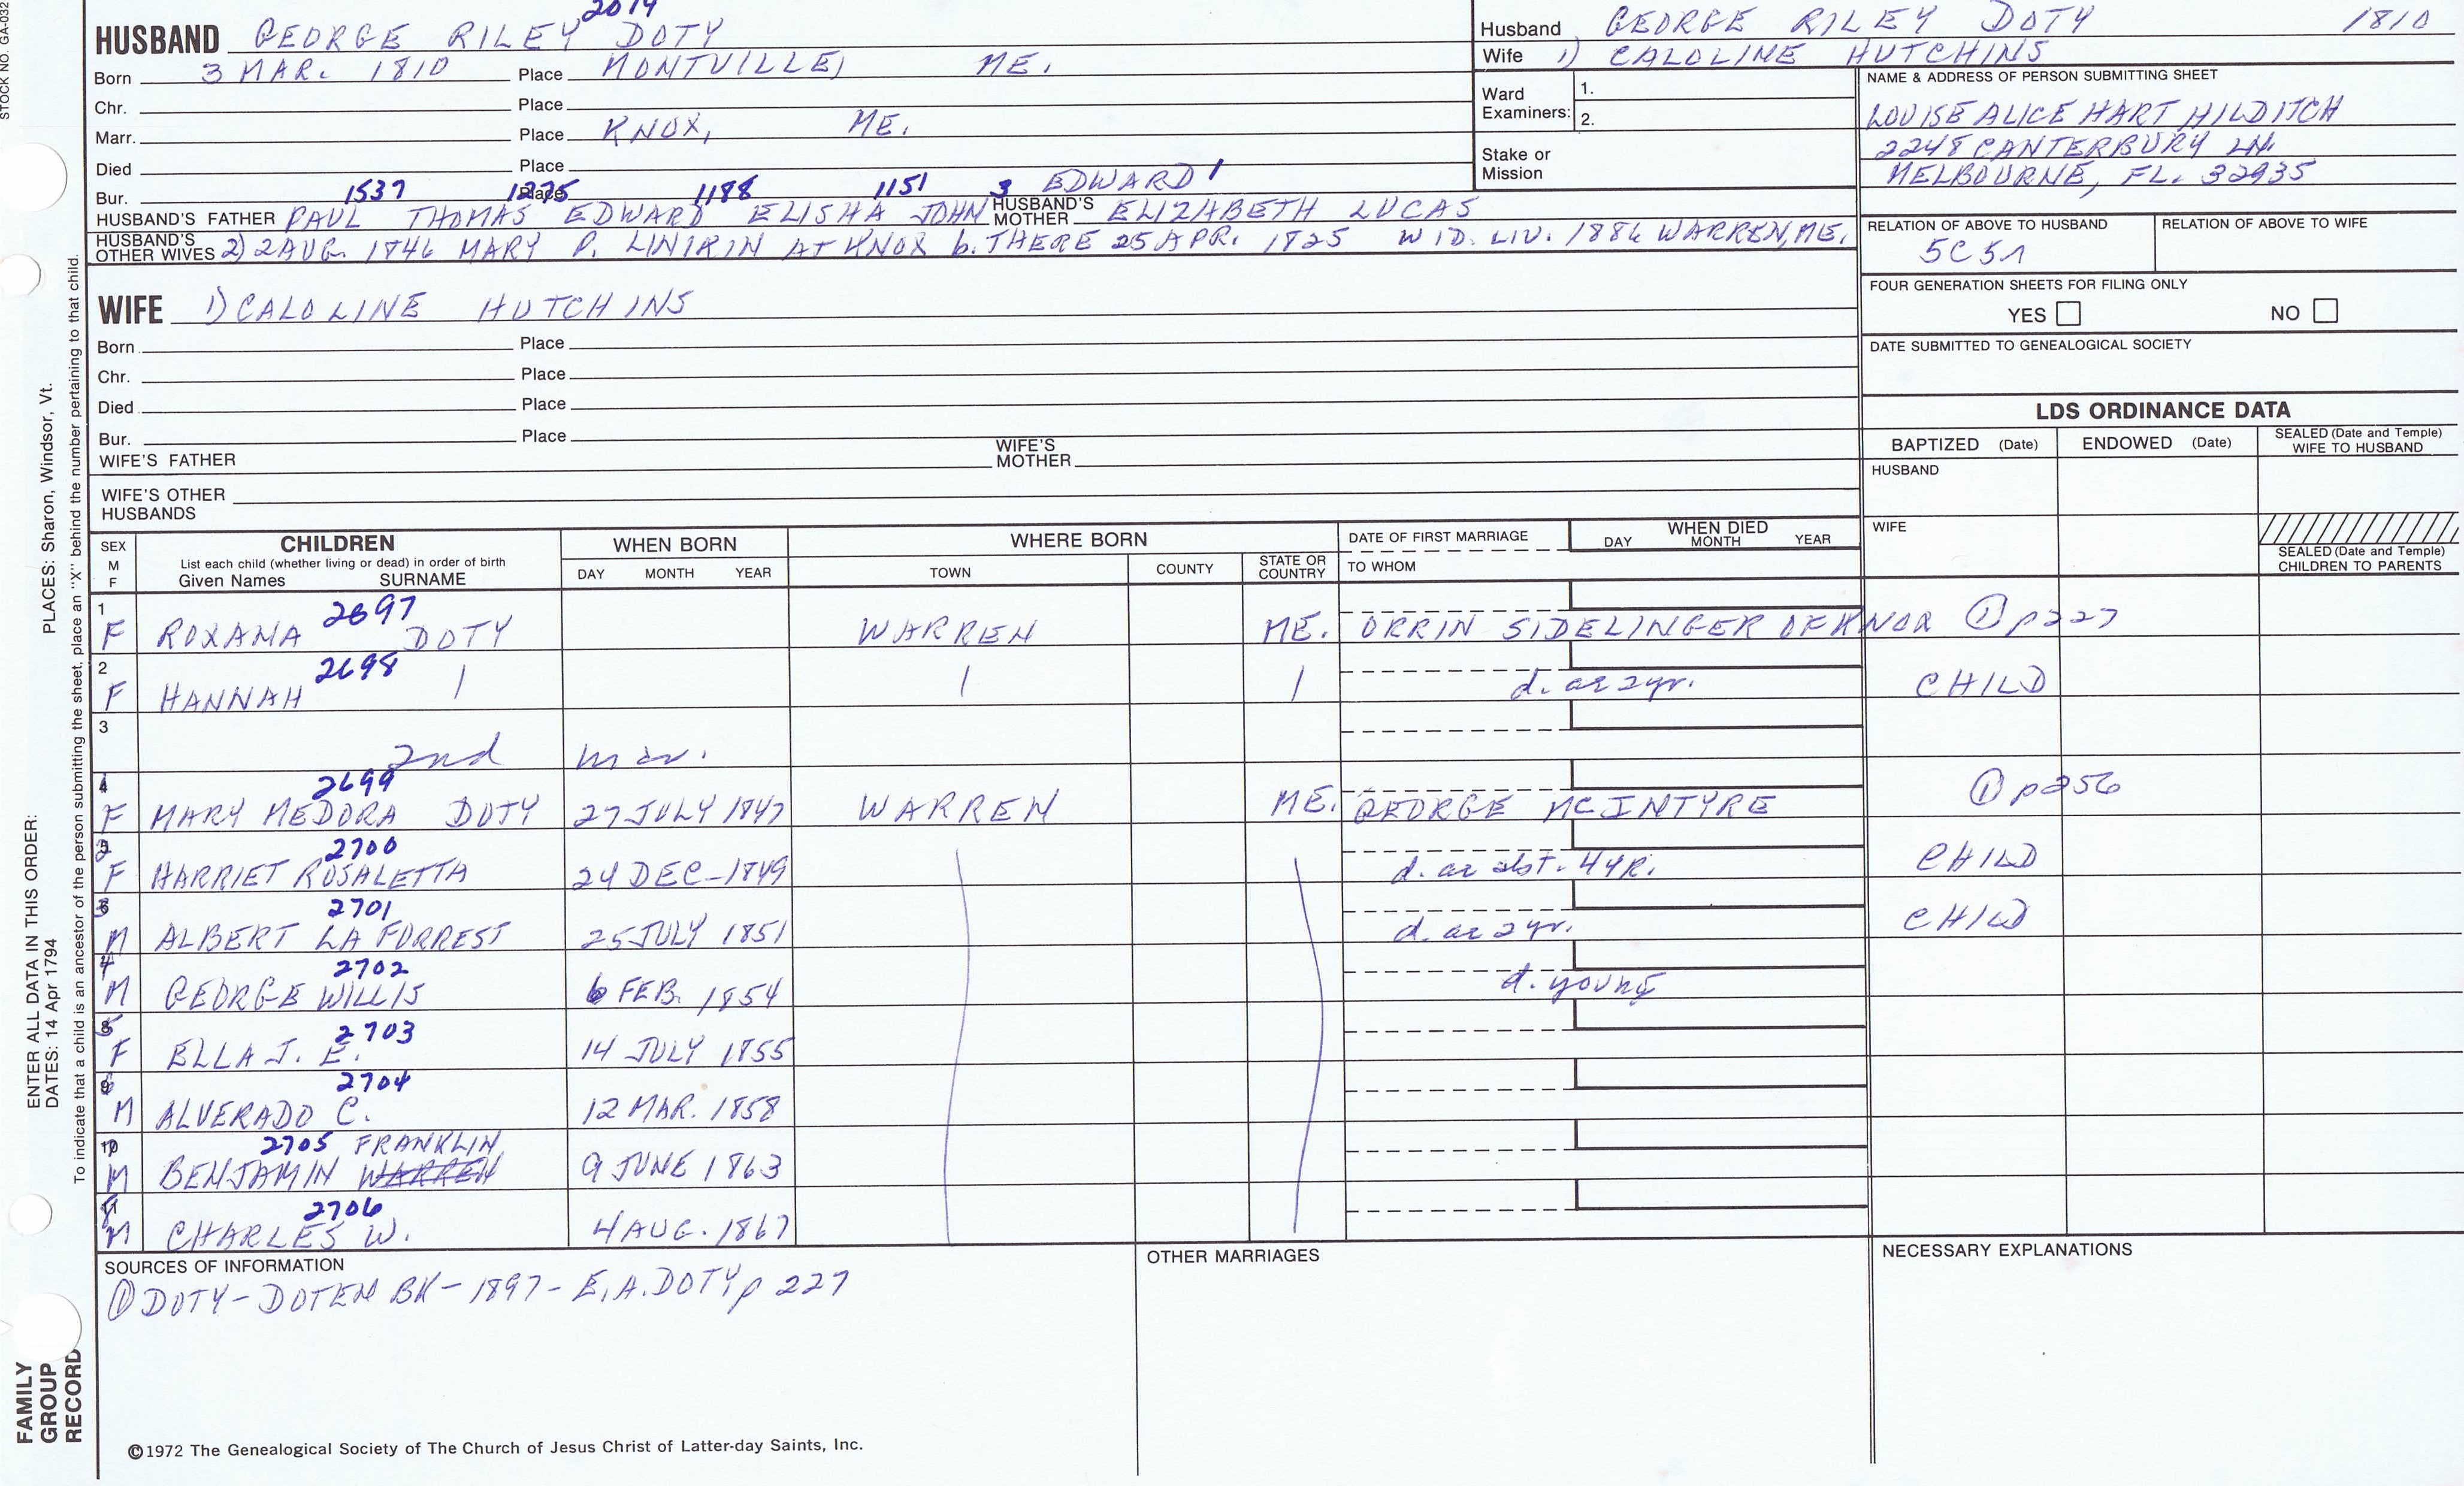 STOCK NO. GA-032
2014
HUSBAND GEORGE RILEY DOTY
Born 3 MAR. 1810 Place MONTVILLE, ME.
Chr. Place
Marr. Place KNOX, ME.
Died Place
Bur. Place
1537 1275 1188 1151 3 EDWARD 1
HUSBAND'S FATHER PAUL THOMAS EDWARD ELISHA JOHN HUSBAND'S MOTHER ELIZABETH LUCAS
HUSBAND'S OTHER WIVES 2) 2 AUG. 1846 MARY P. LINIRIN AT KNOX b. THERE 25 APR. 1825 WID. LIV. 1886 WARREN, ME.
WIFE 1) CALOLINE HUTCHINS
Born Place
Chr. Place
Died Place
Bur. Place
WIFE'S FATHER WIFE'S MOTHER
WIFE'S OTHER HUSBANDS
Husband GEORGE RILEY DOTY 1810
Wife 1) CALOLINE HUTCHINS
Ward Examiners: 1.
2.
Stake or Mission
NAME & ADDRESS OF PERSON SUBMITTING SHEET
LOUISE ALICE HART HILDITCH
2248 CANTERBURY LN.
MELBOURNE, FL. 32935
RELATION OF ABOVE TO HUSBAND RELATION OF ABOVE TO WIFE
5C5R
FOUR GENERATION SHEETS FOR FILING ONLY
YES NO
DATE SUBMITTED TO GENEALOGICAL SOCIETY
LDS ORDINANCE DATA
BAPTIZED (Date) ENDOWED (Date) SEALED (Date and Temple) WIFE TO HUSBAND
HUSBAND
WIFE
SEALED (Date and Temple) CHILDREN TO PARENTS
SEX M F
CHILDREN
List each child (whether living or dead) in order of birth
Given Names SURNAME
WHEN BORN
DAY MONTH YEAR
WHERE BORN
TOWN COUNTY STATE OR COUNTRY
DATE OF FIRST MARRIAGE
TO WHOM
WHEN DIED
DAY MONTH YEAR
1 2697
F ROXANA DOTY WARREN ME. ORRIN SIDELINGER OF KNOX ① p227
2 2698
F HANNAH d. ae 2 yr. CHILD
3
2nd mar.
4 2699
F MARY MEDORA DOTY 27 JULY 1847 WARREN ME. GEORGE MCINTYRE ① p256
5 2700
F HARRIET ROSALETTA 24 DEC-1849 d. ae abt. 4 YR. CHILD
6 2701
M ALBERT LA FORREST 25 JULY 1851 d. ae 2 yr. CHILD
4 2702
M GEORGE WILLIS 6 FEB. 1854 d. young
8 2703
F ELLA J. E. 14 JULY 1855
9 2704
M ALVERADO C. 12 MAR. 1858
10 2705 FRANKLIN
M BENJAMIN WARREN 9 JUNE 1863
11 2706
M CHARLES W. 4 AUG. 1867
SOURCES OF INFORMATION
① DOTY-DOTEN BK-1897-E.A. DOTY p 227
OTHER MARRIAGES
NECESSARY EXPLANATIONS
©1972 The Genealogical Society of The Church of Jesus Christ of Latter-day Saints, Inc.
To indicate that a child is an ancestor of the person submitting the sheet, place an "X" behind the number pertaining to that child.
ENTER ALL DATA IN THIS ORDER: PLACES: Sharon, Windsor, Vt.
DATES: 14 Apr 1794
FAMILY
GROUP
RECORD